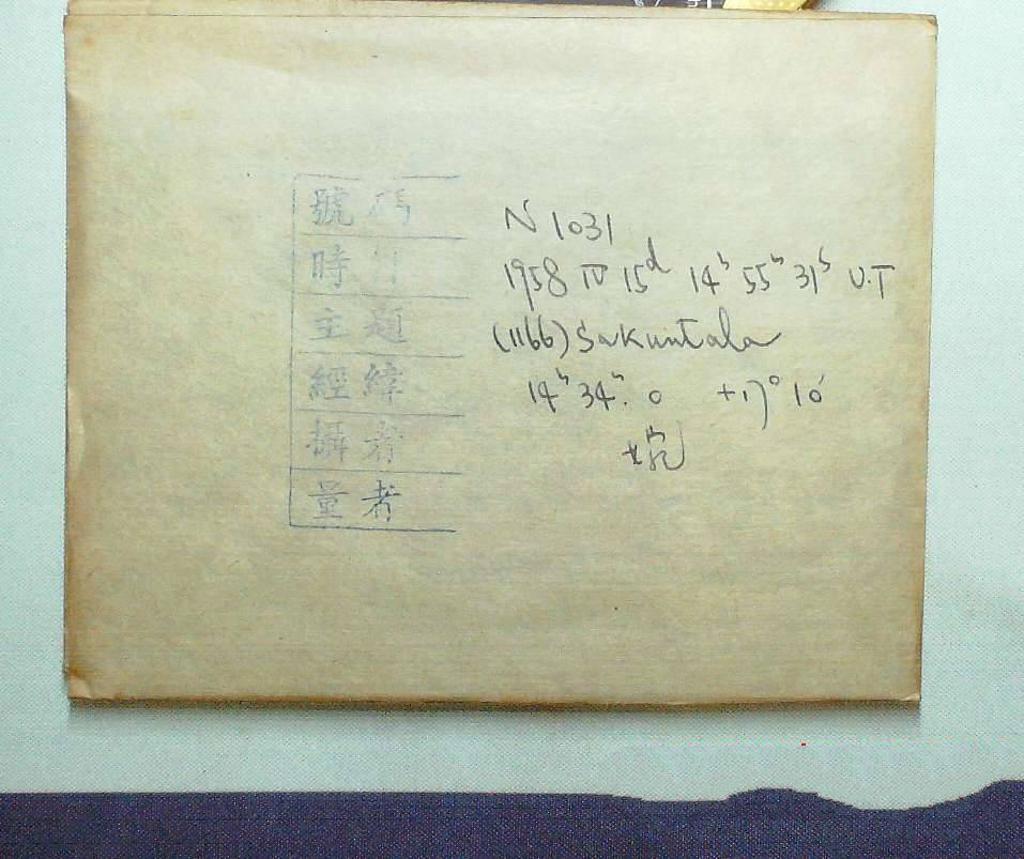 號碼 N 1031
時 1958 IV 15ᵈ 14ʰ 55ᵐ 31ˢ U.T
主題 (1166) Sakuntala
經緯 14ʰ 34ᵐ.0 +17° 10′
攝者
量者